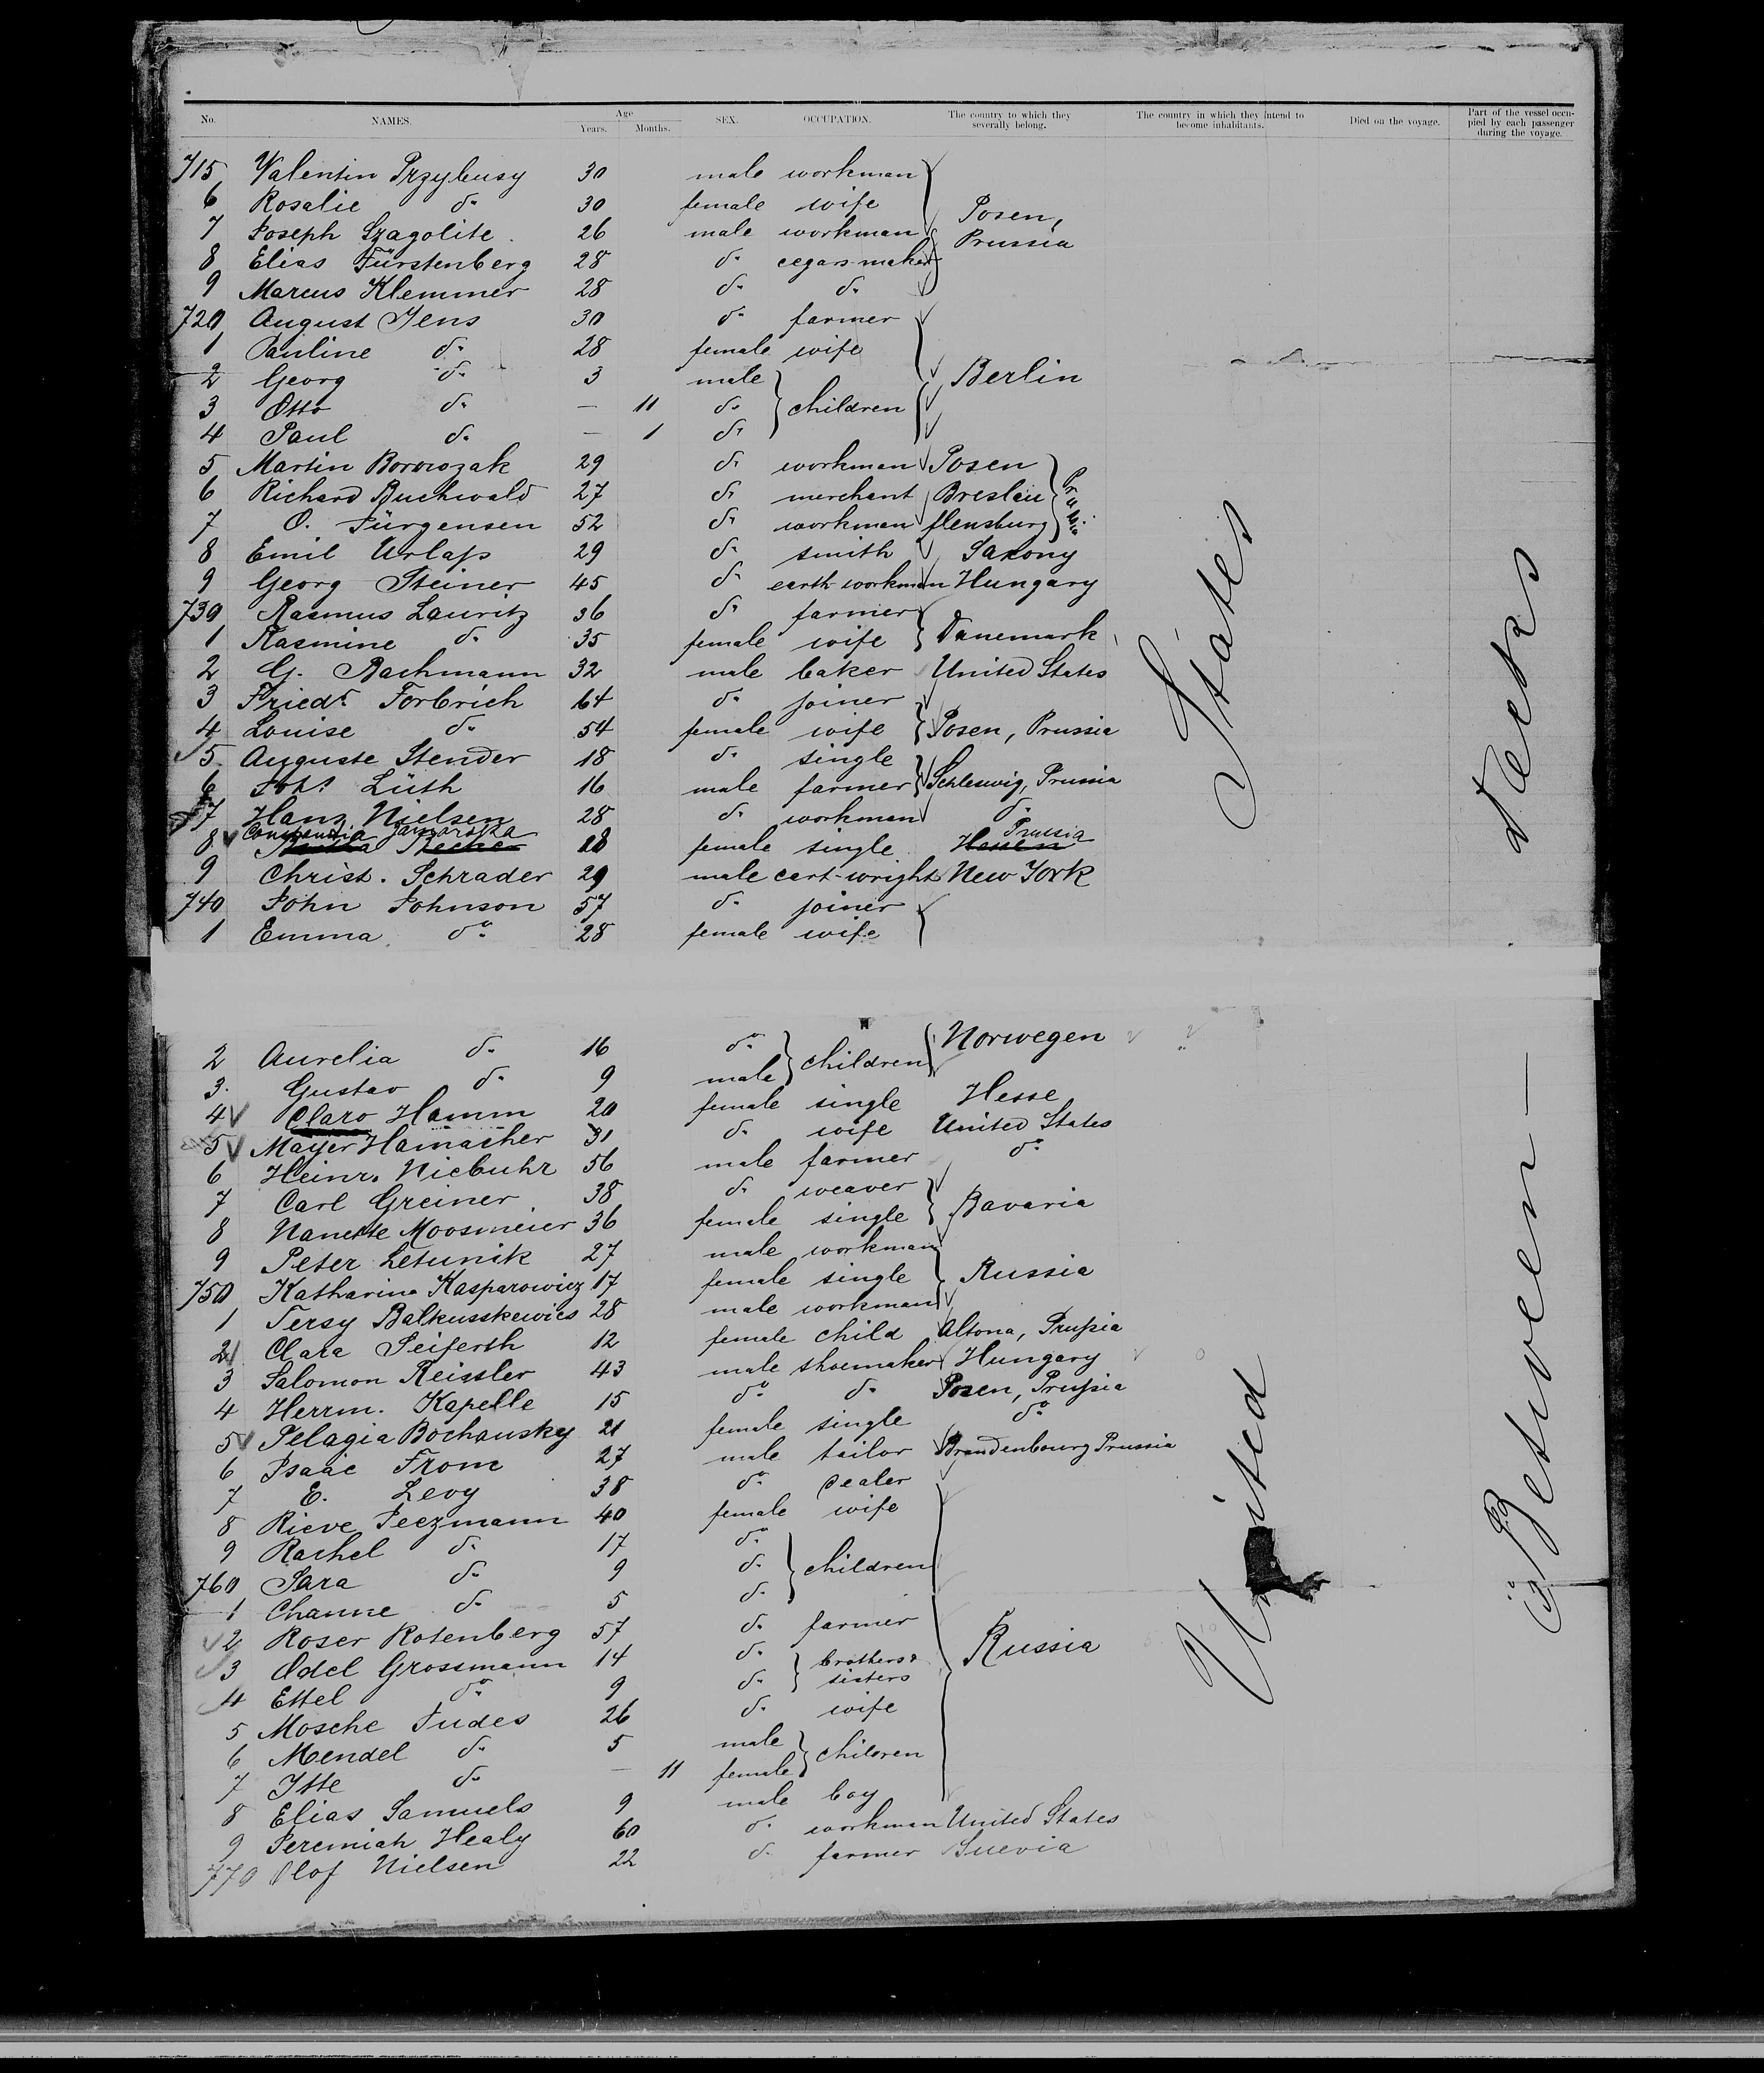 No. NAMES. Age Years. Months. SEX. OCCUPATION. The country to which they severally belong. The country in which they intend to become inhabitants. Died on the voyage. Part of the vessel occupied by each passenger during the voyage.
715 Valentin Przybusy 30 male workman
6 Rosalie do 30 female wife Posen,
7 Joseph Szagolite 26 male workman Prussia
8 Elias Fürstenberg 28 do cegars-maker
9 Marcus Klemmer 28 do do
720 August Jens 30 do farmer
1 Pauline do 28 female wife
2 Georg do 3 male Berlin
3 Otto do — 11 do children
4 Paul do — 1 do
5 Martin Borowozak 29 do workman Posen
6 Richard Buchwald 27 do merchant Breslau
7 O. Jürgensen 52 do workman flensburg
8 Emil Urlaps 29 do smith Saxony
9 Georg Steiner 45 do earth-workman Hungary
730 Rasmus Lauritz 36 do farmer
1 Rasmine do 35 female wife Danemark
2 G. Bachmann 32 male baker United States
3 Friedr. Forbrich 64 do joiner
4 Louise do 54 female wife Posen, Prussia
5 Auguste Stender 18 do single
6 Johs Lüth 16 male farmer Schleswig, Prussia
7 Hans Nielsen 28 do workman do
8 Jamorska 28 female single Prussia
9 Christ. Schrader 29 male cart-wright New York
740 John Johnson 57 do joiner
1 Emma do 28 female wife
2 Aurelia do 16 do children Norwegen
3. Gustav do 9 male
4 Clara Hamm 20 female single Hesse
5 Mayer Hamacher 31 do wife United States
6 Heinr. Niebuhr 56 male farmer do
7 Carl Greiner 38 do weaver
8 Nanette Moosmeier 36 female single Bavaria
9 Peter Letunik 27 male workman
750 Katharina Kasparowicz 17 female single Russia
1 Tersy Balkusskewics 28 male workman
2 Clara Seiferth 12 female child Altona, Prussia
3 Salomon Reissler 43 male shoemaker Hungary
4 Herrm. Kapelle 15 do do Posen, Prussia
5 Pelagia Bochansky 21 female single do
6 Isaac From 27 male tailor Brandenbourg Prussia
7 E. Levy 38 do dealer
8 Rieve Peezmann 40 female wife
9 Rachel do 17 do
760 Sara do 9 do children
1 Channe do 5 do
2 Roser Rotenberg 57 do farmer
3 Odel Grossmann 14 do brothers & Russia
4 Ettel do 9 do sisters
5 Mosche Judes 26 do wife
6 Mendel do 5 male children
7 Itte do — 11 female
8 Elias Samuels 9 male boy
9 Jeremiah Healy 60 do workman United States
770 Olof Nielsen 22 do farmer Suevia
United States
Between Decks